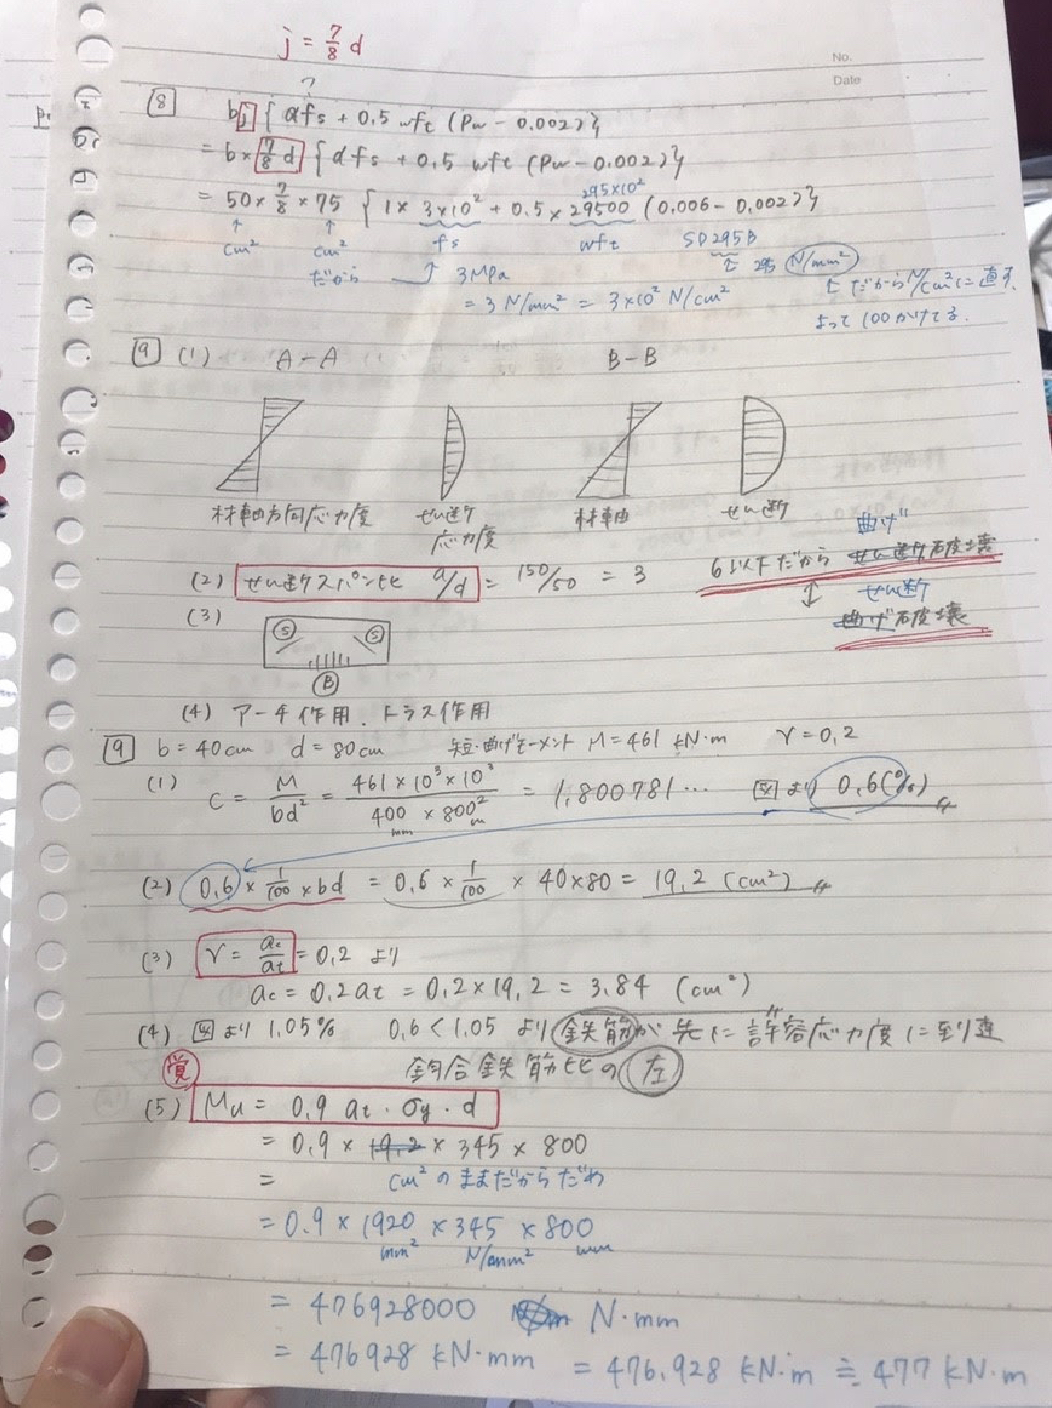 j = 7/8 d
No.
Date
8 bj { αfs + 0.5 wft (Pw - 0.002)}
= b × 7/8 d { αfs + 0.5 wft (Pw - 0.002)}
295×10²
= 50 × 7/8 × 75 { 1 × 3×10² + 0.5 × 29500 (0.006 - 0.002)}
↑ ↑ fs wft SD295B
cm² cm² 295 N/mm²
だから → ↑ 3MPa だからN/cm²に直す、
= 3 N/mm² = 3×10² N/cm² よって100かけてる.
9 (1) A-A B-B
材軸方向応力度 せん断応力度 材軸 せん断
曲げ
(2) せん断スパン比 a/d = 150/50 = 3 6以下だから せん断破壊
↕ せん断
(3) S S 曲げ破壊
B
(4) アーチ作用. トラス作用
9 b = 40cm d = 80cm 短・曲げモーメント M = 461 kN・m γ = 0,2
(1) C = M/bd² = 461×10³×10³ / 400 × 800² = 1,800781… 図より 0,6(%)
mm m
(2) 0,6 × 1/100 × bd = 0,6 × 1/100 × 40×80 = 19,2 (cm²)
(3) γ = ac/at = 0,2 より
ac = 0,2 at = 0,2 × 19,2 = 3,84 (cm²)
(4) 図より 1,05% 0,6 < 1.05 より 鉄筋が 先に 許容応力度に到達
覚 釣合鉄筋比の 左
(5) Mu = 0,9 at・σy・d
= 0,9 × 19,2 × 345 × 800
= cm²のままだからだめ
= 0.9 × 1920 × 345 × 800
mm² N/mm² mm
= 476928000 N・mm
= 476928 kN・mm = 476.928 kN・m ≒ 477 kN・m